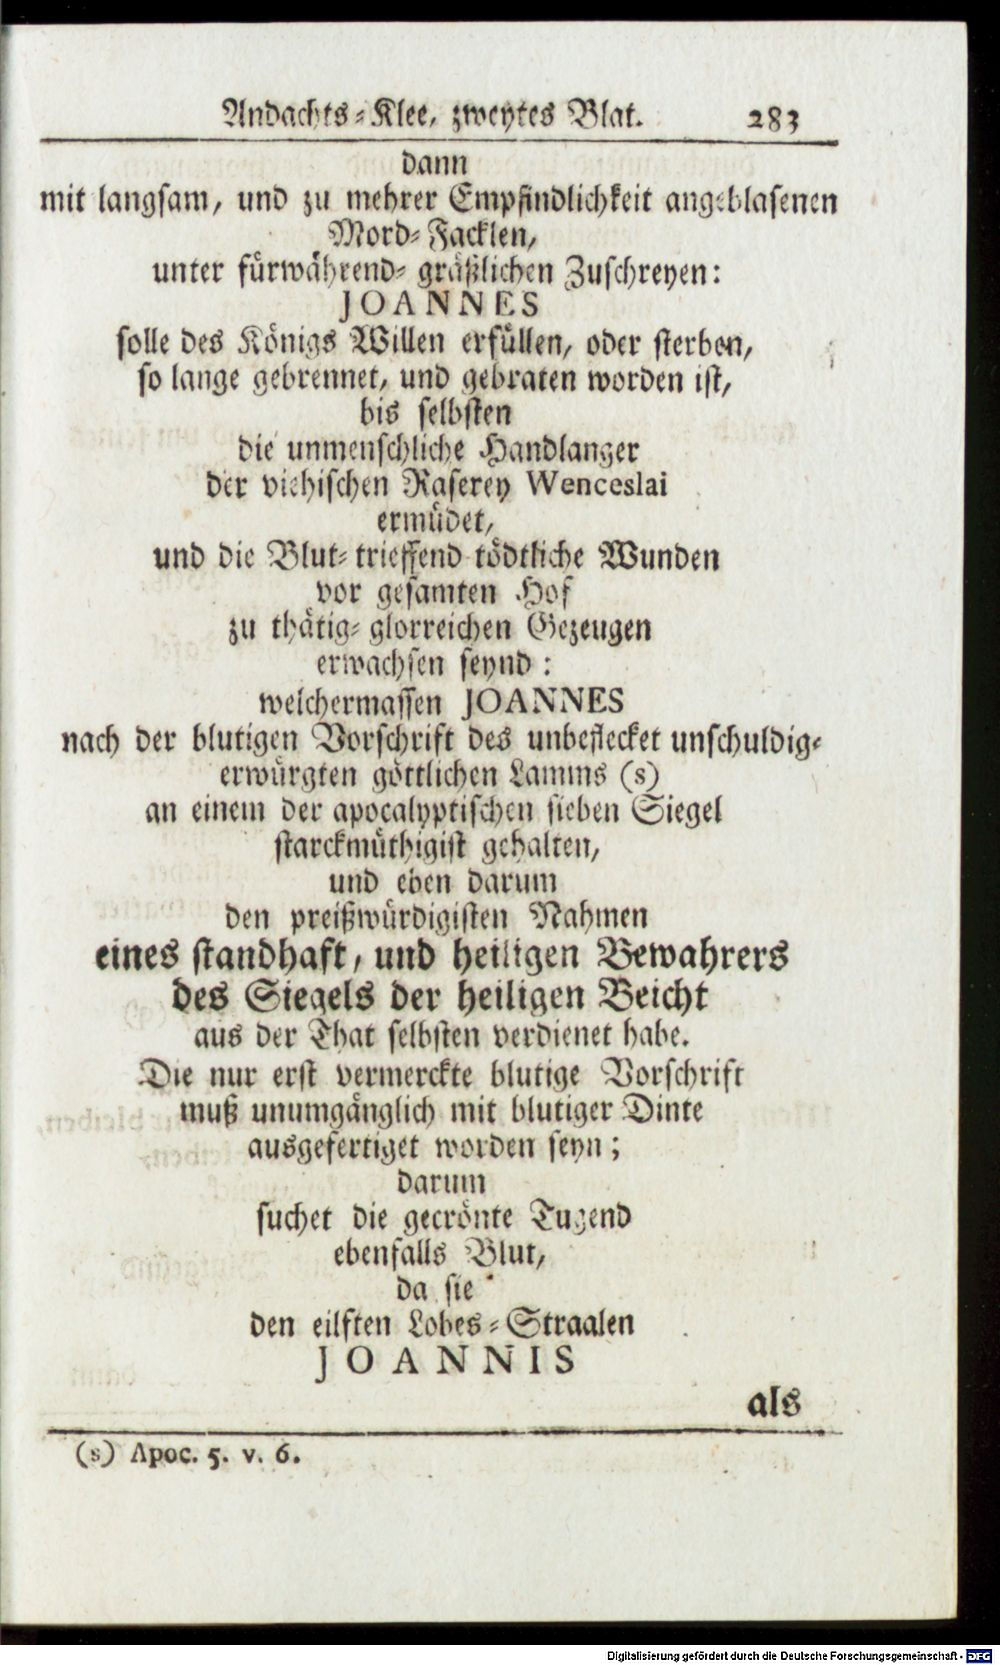 Andachts-Klee, zweytes Blat. 283
dann
mit langsam, und zu mehrer Empfindlichkeit angeblasenen
Mord-Facklen,
unter fürwährend-gräßlichen Zuschreyen:
JOANNES
solle des Königs Willen erfüllen, oder sterben,
so lange gebrennet, und gebraten worden ist,
bis selbsten
die unmenschliche Handlanger
der viehischen Raserey Wenceslai
ermüdet,
und die Blut-trieffend tödtliche Wunden
vor gesamten Hof
zu thätig-glorreichen Gezeugen
erwachsen seynd:
welchermassen JOANNES
nach der blutigen Vorschrift des unbeflecket unschuldig-
erwürgten göttlichen Lamms (s)
an einem der apocalyptischen sieben Siegel
starckmüthigist gehalten,
und eben darum
den preißwürdigisten Nahmen
eines standhaft, und heiligen Bewahrers
des Siegels der heiligen Beicht
aus der That selbsten verdienet habe.
Die nur erst vermerckte blutige Vorschrift
muß unumgänglich mit blutiger Dinte
ausgefertiget worden seyn;
darum
suchet die gecrönte Tugend
ebenfalls Blut,
da sie
den eilften Lobes-Straalen
JOANNIS
als
(s) Apoc. 5. v. 6.
Digitalisierung gefördert durch die Deutsche Forschungsgemeinschaft - DFG